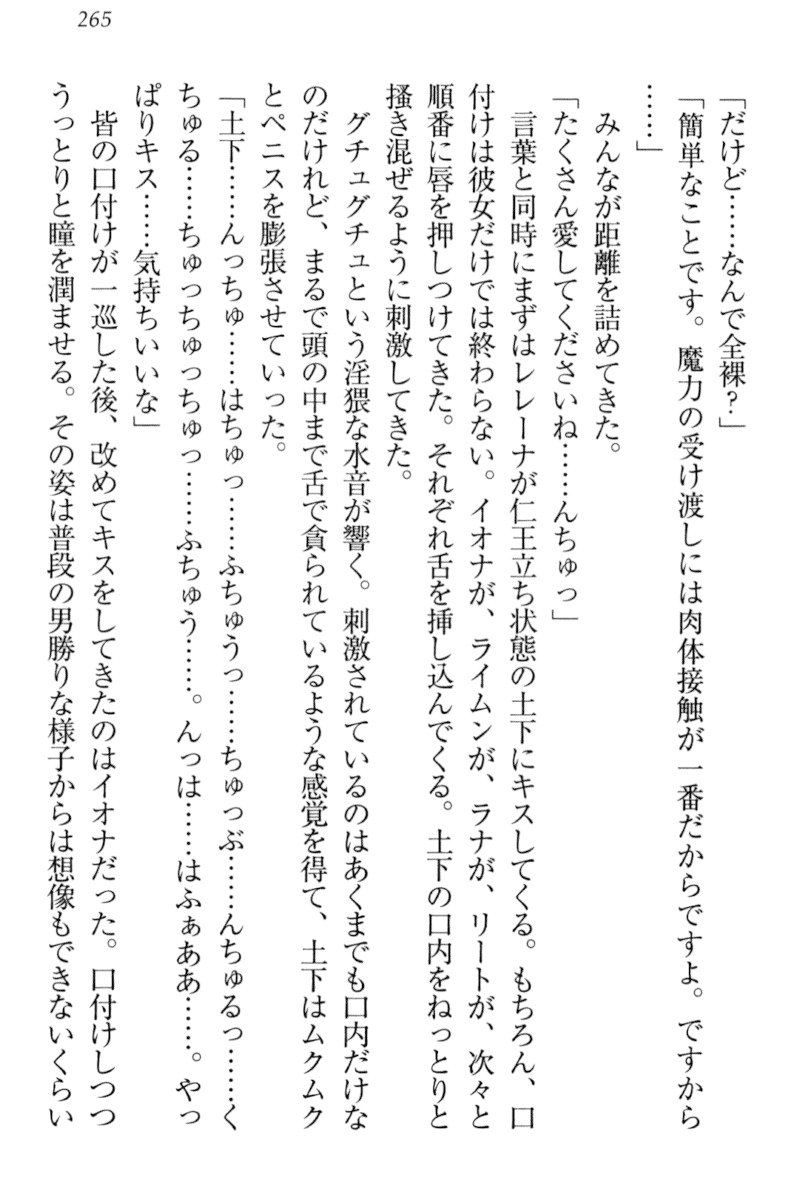 265
「だけど……なんで全裸？」
「簡単なことです。魔力の受け渡しには肉体接触が一番だからですよ。ですから
……」
　みんなが距離を詰めてきた。
「たくさん愛してくださいね……んちゅっ」
　言葉と同時にまずはレレーナが仁王立ち状態の土下にキスしてくる。もちろん、口
付けは彼女だけでは終わらない。イオナが、ライムンが、ラナが、リートが、次々と
順番に唇を押しつけてきた。それぞれ舌を挿し込んでくる。土下の口内をねっとりと
掻き混ぜるように刺激してきた。
　グチュグチュという淫猥な水音が響く。刺激されているのはあくまでも口内だけな
のだけれど、まるで頭の中まで舌で貪られているような感覚を得て、土下はムクムク
とペニスを膨張させていった。
「土下……んっちゅ……はちゅっ……ふちゅうっ……ちゅっぶ……んちゅるっ……く
ちゅる……ちゅっちゅっちゅっ……ふちゅう……。んっは……はふぁああ……。やっ
ぱりキス……気持ちいいな」
　皆の口付けが一巡した後、改めてキスをしてきたのはイオナだった。口付けしつつ
うっとりと瞳を潤ませる。その姿は普段の男勝りな様子からは想像もできないくらい